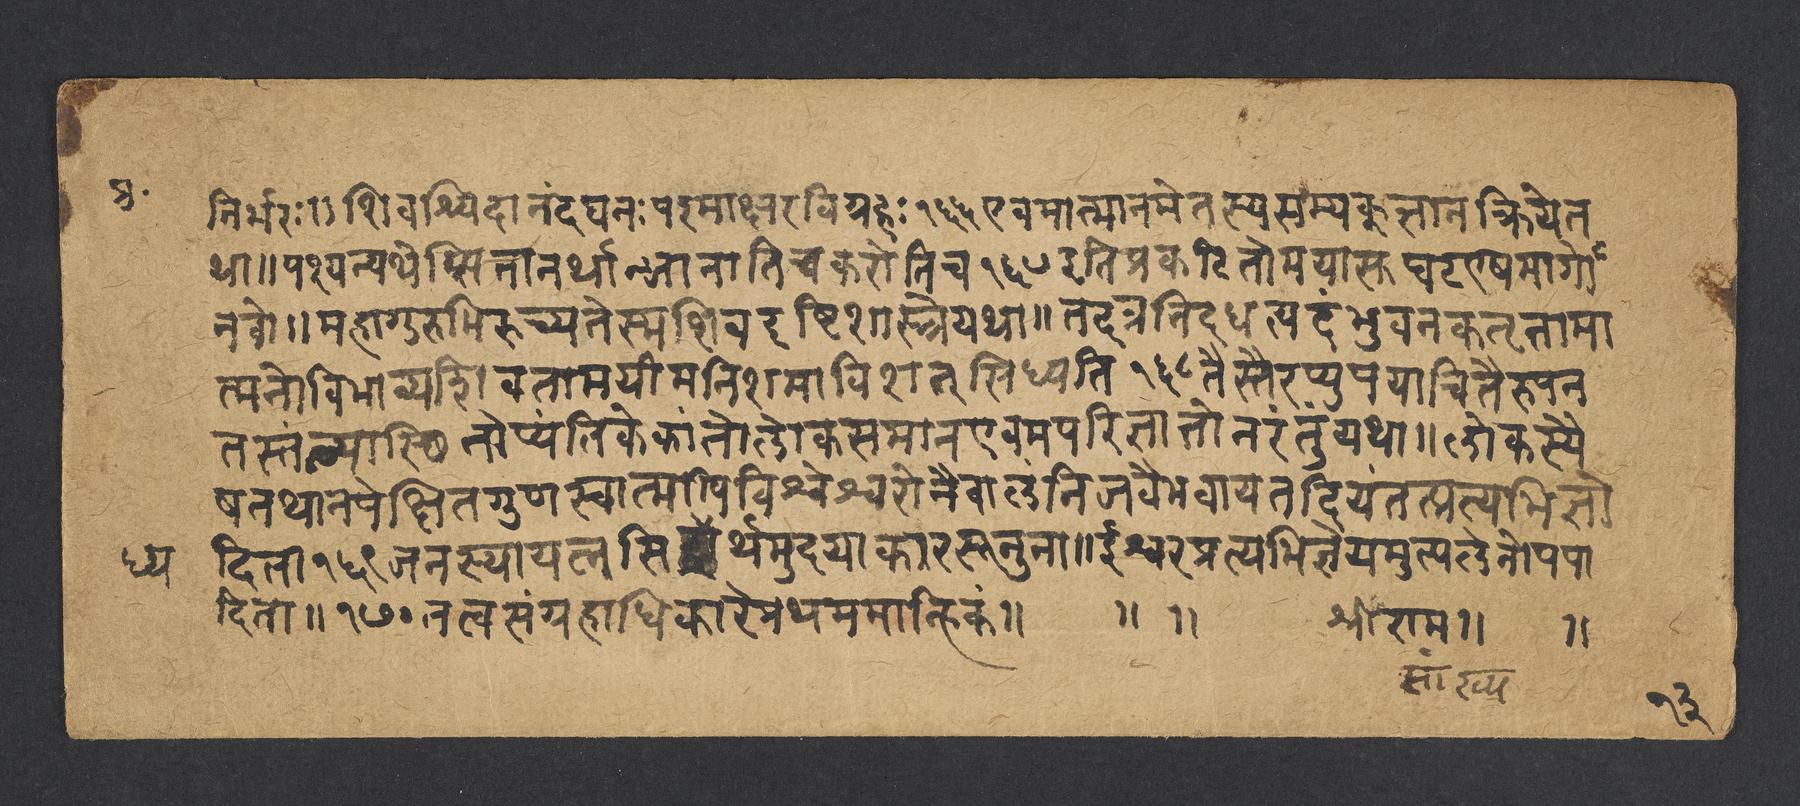 प्र॰
निर्भरः॥ शिवश्चिदानंदघनः परमाक्षरविग्रहः १६६ एवमात्मानमेतस्य सम्यक्ज्ञानक्रियेत
था॥ पश्यन्यथेप्सितानर्थान्जानाति च करोति च १६७ इति प्रकटितो मया सुघट एष मार्गो
नवो॥ महागुरुभिरुच्यते स्म शिवदृष्टिशास्त्रे यथा॥ तदत्र निदधत्पदं भुवनकर्तृतामा
त्मनो विभाव्य शिवतामयीमनिशमाविशन् सिध्यति १६८ तैस्तैरप्युपयाचितैरुपन
तस्तंव्यास्थितोप्यंतिके कांतो लोकसमान एवमपरिज्ञातो न रंतुं यथा॥ लोकस्यै
ष तथानपेक्षितगुणस्वात्मापि विश्वेश्वरो नैवालं निजवैभवाय तदियं तत्प्रत्यभिज्ञो
ध्य
दिता १६९ जनस्यायत्नसि र्थमुदयाकारसूनुना॥ ईश्वरप्रत्यभिज्ञेयमुत्पलेनोपपा
दिता॥ १७० तत्वसंग्रहाधिकारे प्रथममाह्निकं॥ ॥ ॥ श्रीराम॥ ॥
सांख्य
१३